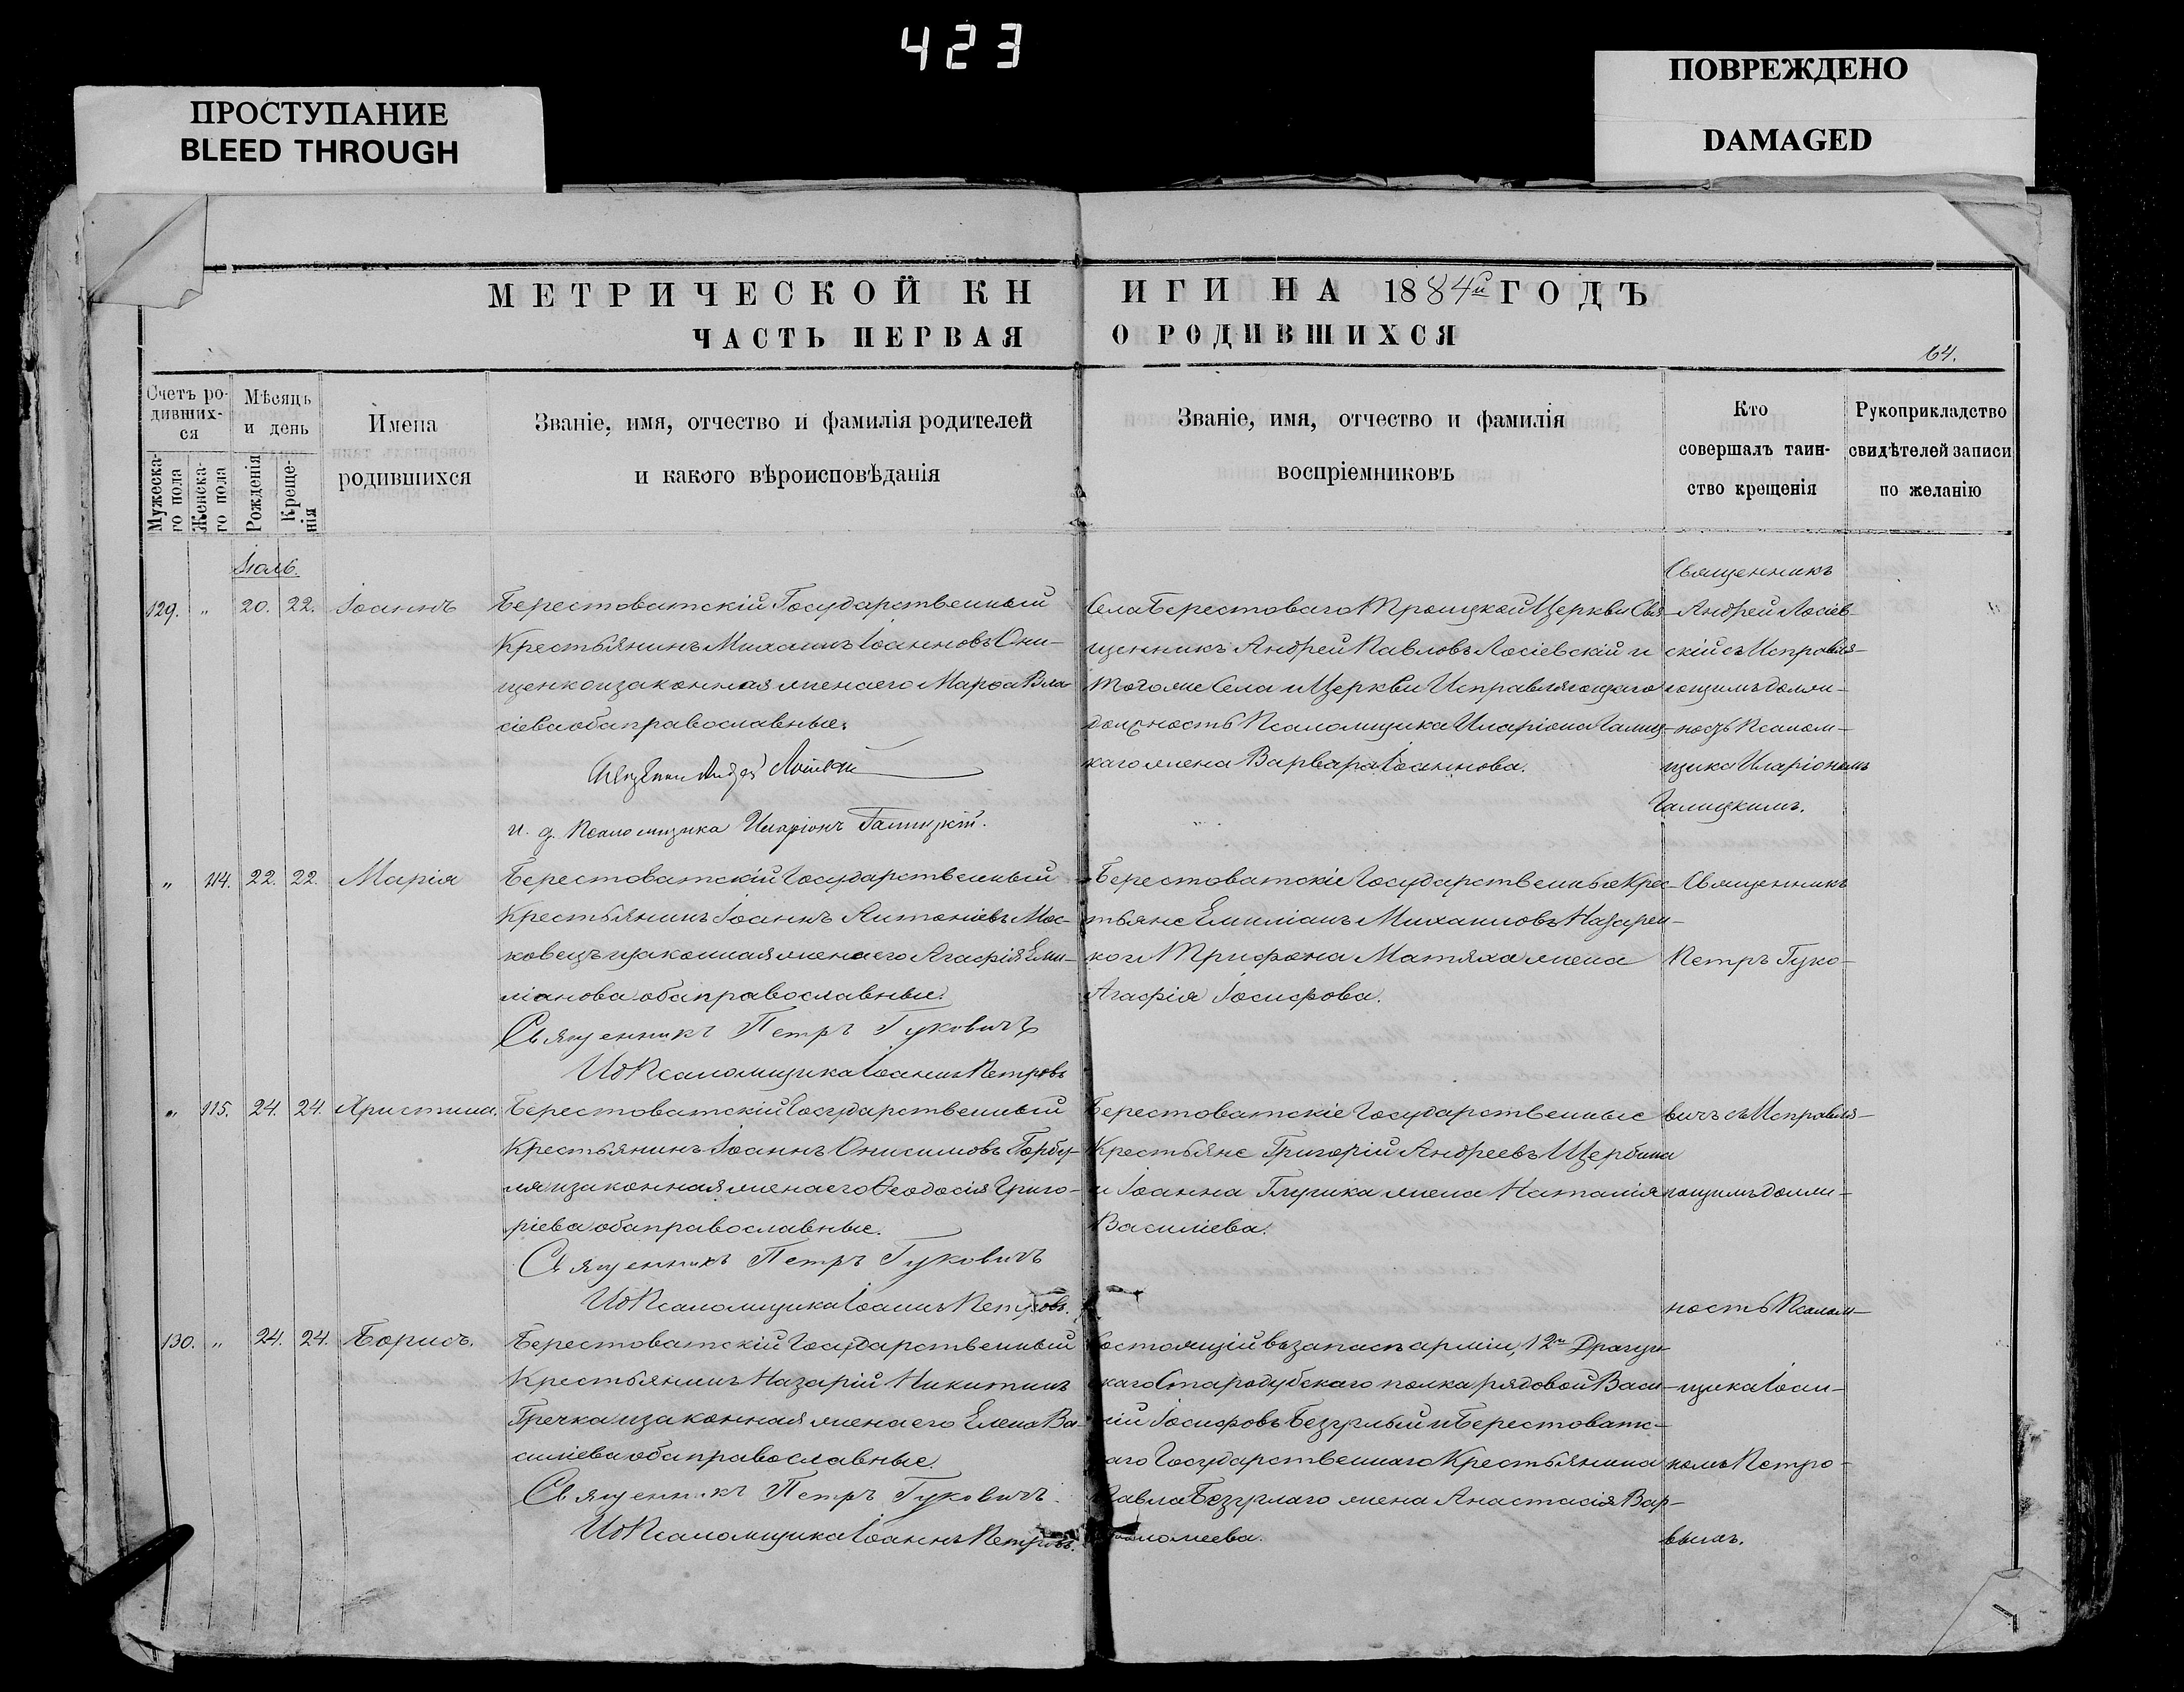 423
ПРОСТУПАНИЕ
BLEED THROUGH
ПОВРЕЖДЕНО
DAMAGED
МЕТРИЧЕСКОЙ КНИГИ НА 1884й ГОДЪ
ЧАСТЬ ПЕРВАЯ О РОДИВШИХСЯ
64.
Счетъ ро-
дивших-
ся
Мужеска-
го пола
Женска-
го пола
Мѣсяцъ
и день
Рожденія
Креще-
нія
Имена
родившихся
Званіе, имя, отчество и фамилія родителей
и какого вѣроисповѣданія
Званіе, имя, отчество и фамилія
воспріемниковъ
Кто
совершалъ таин-
ство крещенія
Рукоприкладство
свидѣтелей записи
по желанію
Іюль
129. " 20. 22. Іоаннъ
Берестоватскій Государственный
Крестьянинъ Михаилъ Іоанновъ Они-
щенко и законная жена его Марѳа Вла-
сіева оба православные.
Священник Андрей Лосіевскій
и. д. Псаломщика Иларіонъ Галицкій.
Села Берестоваго Троицкой Церкви Свя-
щенникъ Андрей Павловъ Лосіевскій и
того же Села и Церкви Исправляющаго
должность Псаломщика Иларіона Галиц-
каго жена Варвара Іоаннова.
Священникъ
Андрей Лосіев-
скій съ Исправля-
ющимъ долж-
ность Псалом-
щика Иларіономъ
Галицкимъ.
" 114. 22. 22. Марія
Берестоватскій Государственный
Крестьянинъ Іоаннъ Антоніевъ Мос-
ковецъ и законная жена его Агафія Еми-
ліанова оба православные.
Священникъ Петръ Гуковичъ
И д Псаломщика Іоаннъ Петровъ
Берестоватскіе Государственные Крес-
тьяне Емиліанъ Михаиловъ Назарен-
ко и Трифона Матяха жена
Агафія Іосифова.
Священникъ
Петръ Гуко-
" 115. 24. 24. Христина.
Берестоватскій Государственный
Крестьянинъ Іоаннъ Онисимовъ Горбу-
ля и законная жена его Ѳеодосія Григо-
ріева оба православные.
Священникъ Петръ Гуковичъ
И д Псаломщика Іоаннъ Петровъ.
Берестоватскіе Государственные
Крестьяне Григорій Андреевъ Щербина
и Іоанна Глушка жена Наталія
Василіева.
вичъ съ Исправля-
ющимъ долж-
ность Псалом-
130. " 24. 24. Борисъ.
Берестоватскій Государственный
Крестьянинъ Назарій Никитинъ
Гречка и законная жена его Елена Ва-
силіева оба православные.
Священникъ Петръ Гуковичъ.
И д Псаломщика Іоаннъ Петровъ.
Состоящій въ запасѣ арміи, 12го Драгун
скаго Стародубскаго полка рядовой Васи-
лій Іосифовъ Безуглый и Берестоватс-
каго Государственнаго Крестьянина
Павла Безуглаго жена Анастасія Вар-
ѳоломеева.
щика Іоан-
номъ Петро-
вымъ.